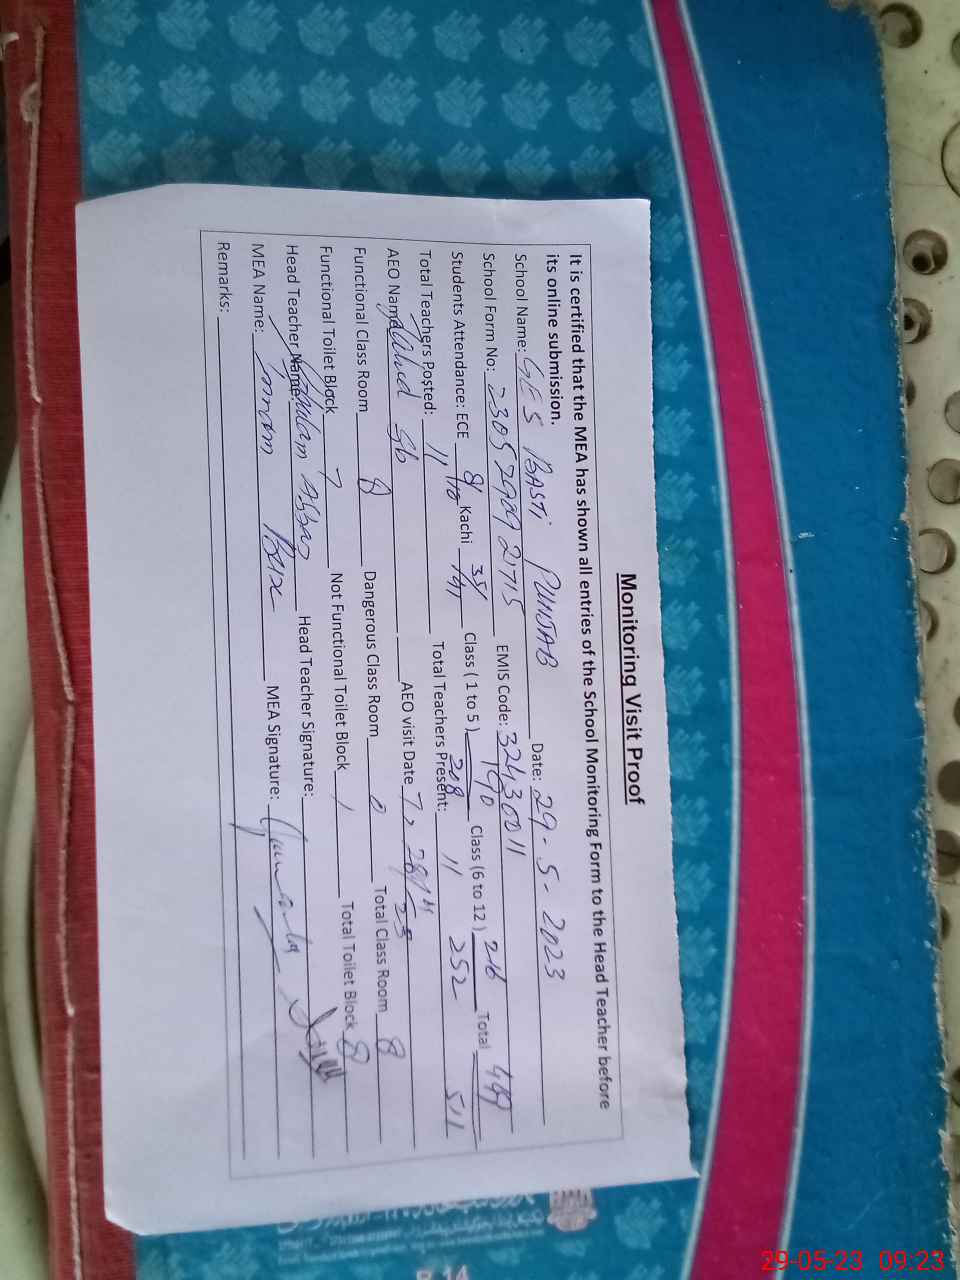 Monitoring Visit Proof
It is certified that the MEA has shown all entries of the School Monitoring Form to the Head Teacher before
its online submission.
School Name: GES BASTi PUNJAB Date: 29-5-2023
School Form No: 230529892715 EMIS Code: 32430011
Students Attendance: ECE 8/10 Kachi 35/41 Class ( 1 to 5 ) 190/208 Class (6 to 12 ) 216/252 Total 449/511
Total Teachers Posted: 11 Total Teachers Present: 11
AEO Name AEO visit Date
Functional Class Room 8 Dangerous Class Room 0 Total Class Room 8
Functional Toilet Block 7 Not Functional Toilet Block 1 Total Toilet Block 8
Head Teacher Name: Ghulam Abbas Head Teacher Signature:
MEA Name: Imram Bux MEA Signature:
Remarks:
29-05-23 09:23